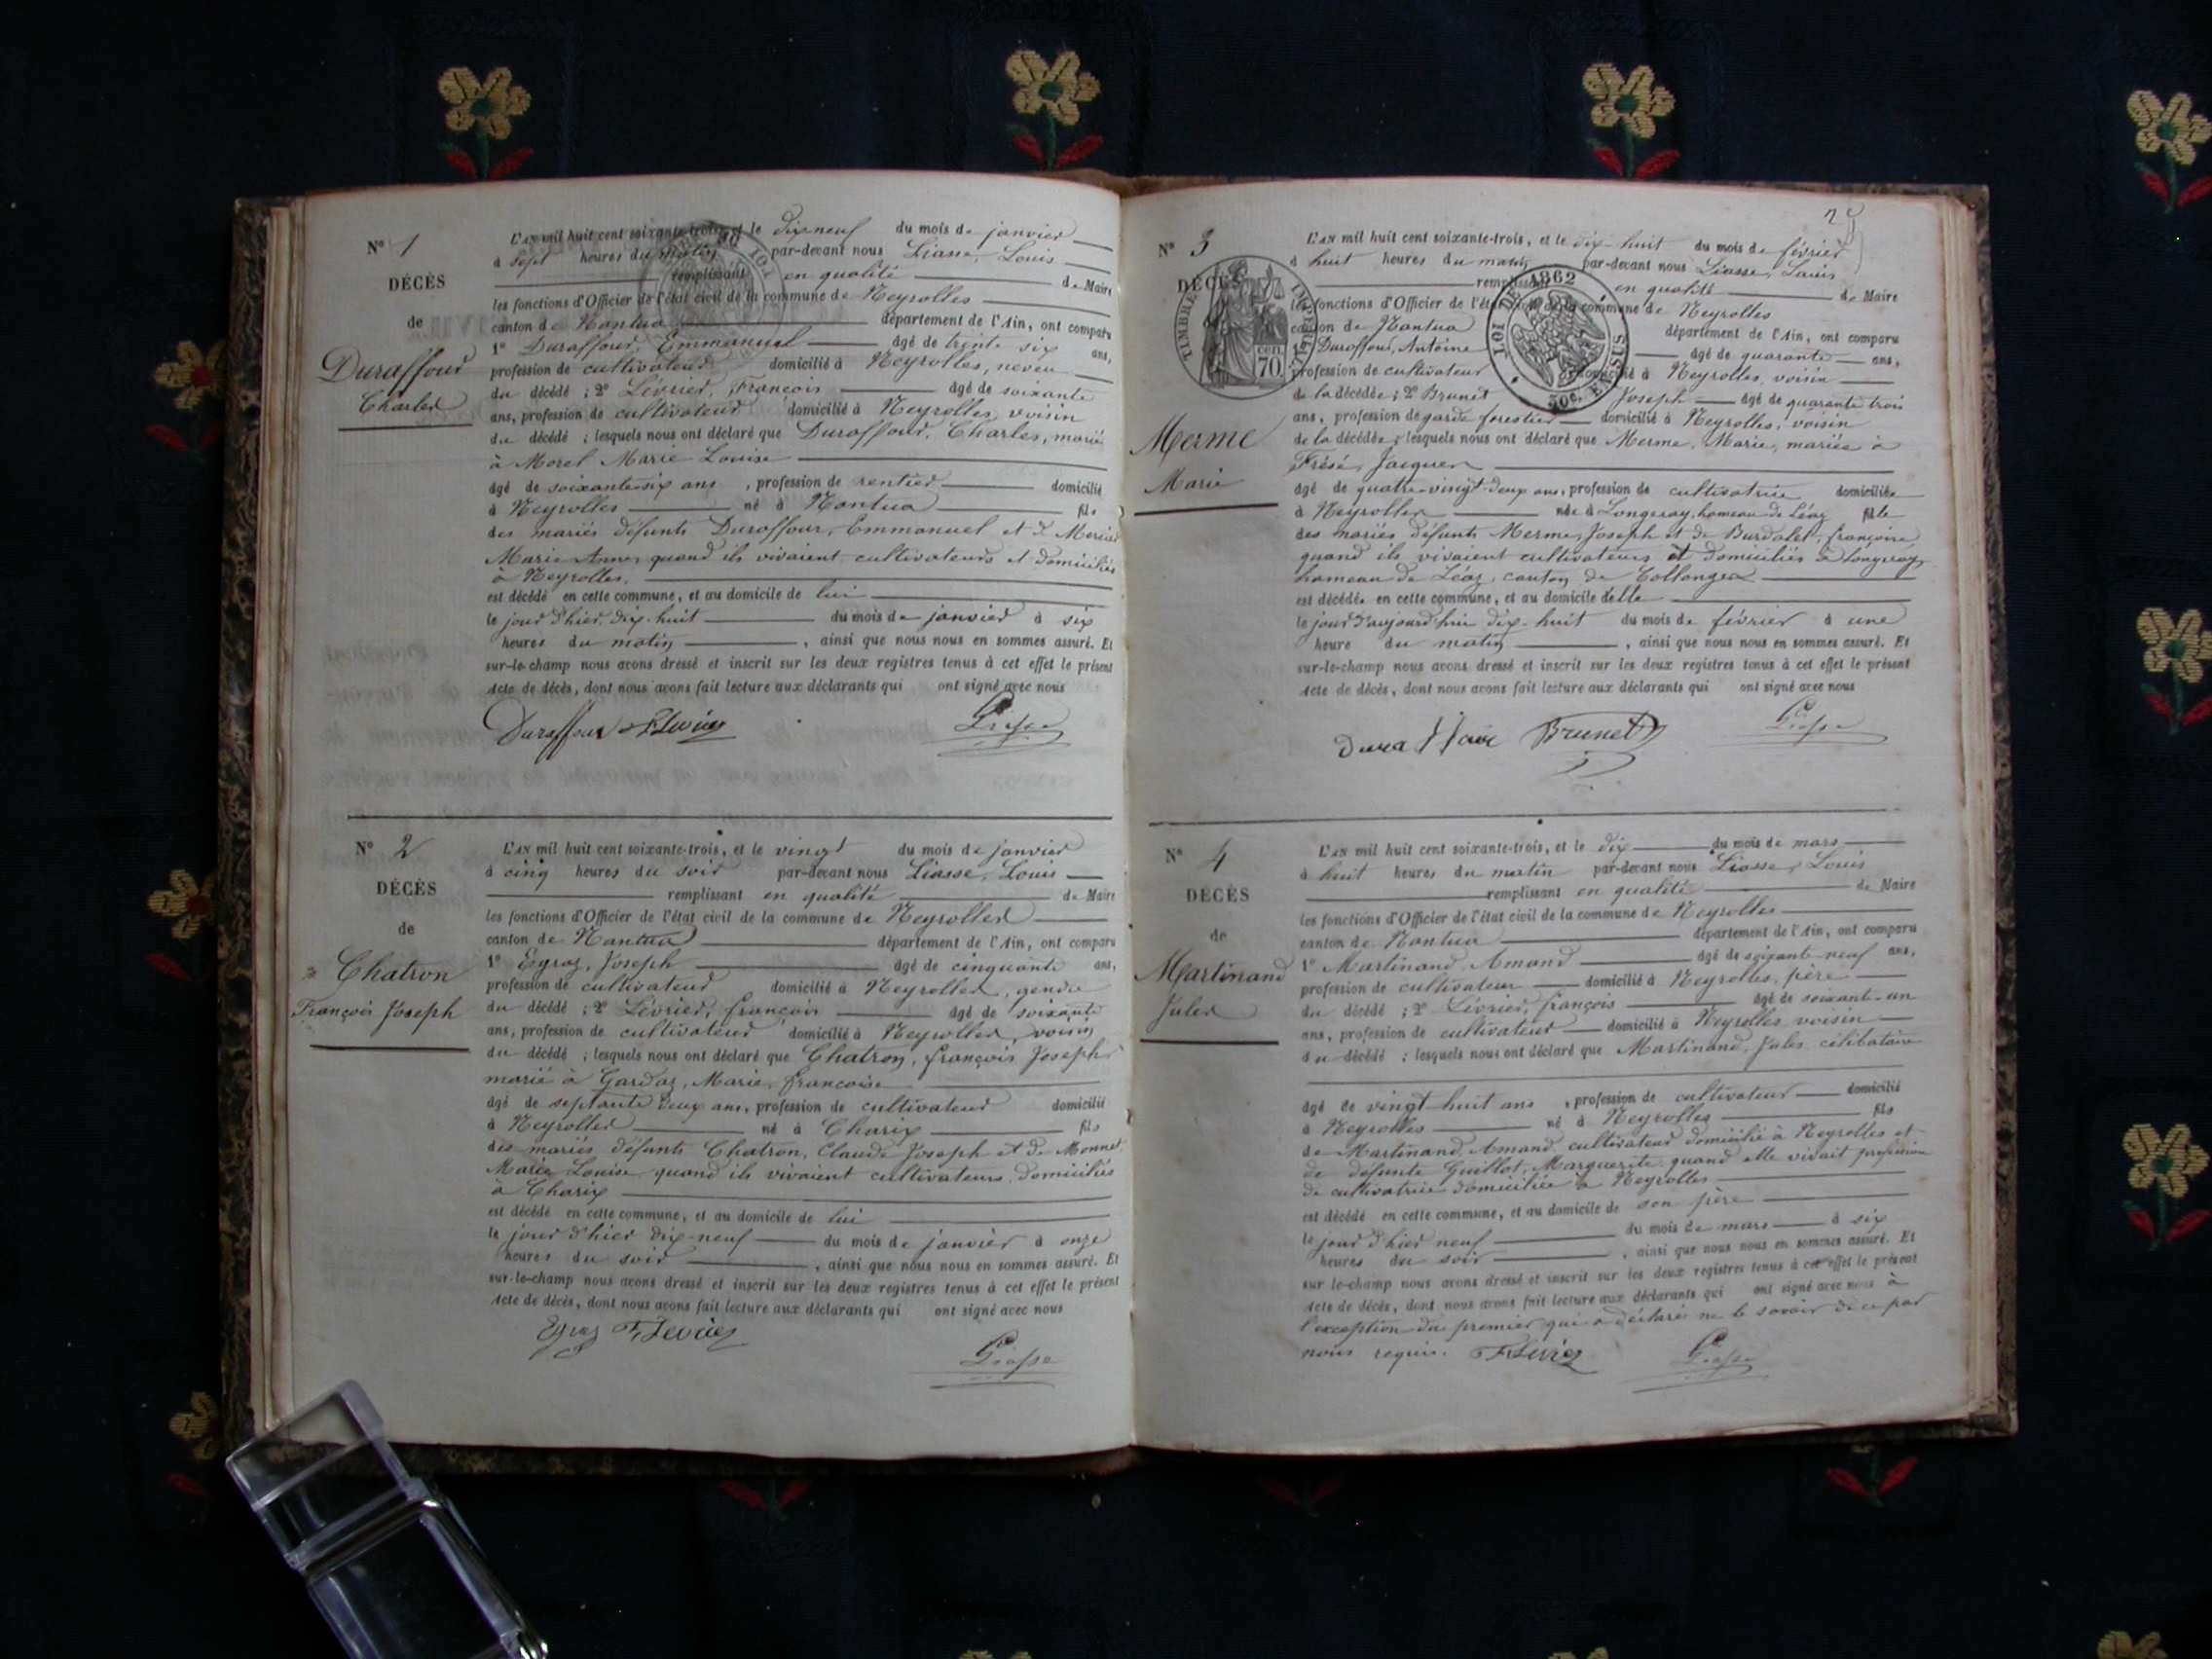 N° 1
DÉCÈS
de
Duraffour
Charles
L'AN mil huit cent soixante-trois, et le dix-neuf du mois de janvier
à sept heures du matin par-devant nous Liasse, Louis
remplissant en qualité de Maire
les fonctions d'Officier de l'état civil de la commune de Neyrolles
canton de Nantua département de l'Ain, ont comparu
1° Duraffour, Emmanuel âgé de trente six ans,
profession de cultivateur domicilié à Neyrolles, neveu
du décédé ; 2° Lévrier, François âgé de soixante
ans, profession de cultivateur domicilié à Neyrolles, voisin
du décédé ; lesquels nous ont déclaré que Duraffour, Charles, marié
à Morel Marie Louise
âgé de soixante-six ans, profession de rentier domicilié
à Neyrolles né à Nantua fils
des mariés défunts Duraffour, Emmanuel et de Mercier
Marie Anne, quand ils vivaient cultivateurs et domiciliés
à Neyrolles.
est décédé en cette commune, et au domicile de lui
le jour d'hier dix-huit du mois de janvier à six
heures du matin, ainsi que nous nous en sommes assuré. Et
sur-le-champ nous avons dressé et inscrit sur les deux registres tenus à cet effet le présent
acte de décès, dont nous avons fait lecture aux déclarants qui ont signé avec nous
Duraffour F Levrier Liasse
N° 2
DÉCÈS
de
Chatron
François Joseph
L'AN mil huit cent soixante-trois, et le vingt du mois de janvier
à cinq heures du soir par-devant nous Liasse, Louis
remplissant en qualité de Maire
les fonctions d'Officier de l'état civil de la commune de Neyrolles
canton de Nantua département de l'Ain, ont comparu
1° Egraz, Joseph âgé de cinquante ans,
profession de cultivateur domicilié à Neyrolles, gendre
du décédé ; 2° Lévrier, françois âgé de soixante
ans, profession de cultivateur domicilié à Neyrolles, voisin
du décédé ; lesquels nous ont déclaré que Chatron, françois Joseph
marié à Gardaz, Marie, francoise
âgé de septante deux ans, profession de cultivateur domicilié
à Neyrolles né à Charix fils
des mariés défunts Chatron, Claude Joseph et de Monnet
Marie Louise quand ils vivaient cultivateurs domiciliés
à Charix
est décédé en cette commune, et au domicile de lui
le jour d'hier dix-neuf du mois de janvier à onze
heures du soir, ainsi que nous nous en sommes assuré. Et
sur-le-champ nous avons dressé et inscrit sur les deux registres tenus à cet effet le présent
acte de décès, dont nous avons fait lecture aux déclarants qui ont signé avec nous
Egraz F Levrier
Liasse
N° 3
DÉCÈS
TIMBRE IMPERIAL
70 cen.
LOI DE 1862
50c. EN SUS
Merme
Marie
L'AN mil huit cent soixante-trois, et le dix-huit du mois de février
à huit heures du matin par-devant nous Liasse, Louis
remplissant en qualité de Maire
les fonctions d'Officier de l'état civil de la commune de Neyrolles
canton de Nantua département de l'Ain, ont comparu
1° Duraffour, Antoine âgé de quarante ans,
profession de cultivateur domicilié à Neyrolles, voisin
de la décédée ; 2° Brunet Joseph âgé de quarante trois
ans, profession de garde forestier domicilié à Neyrolles, voisin
de la décédée ; lesquels nous ont déclaré que Merme, Marie, mariée à
Frésé, Jacques
âgé de quatre-vingt-deux ans, profession de cultivatrice domiciliée
à Neyrolles née à Longeray, hameau de Léaz fille
des mariés défunts Merme, Joseph et de Burdalet, françoise
quand ils vivaient cultivateurs et domiciliés à Longeray
hameau de Léaz, canton de Collonges
est décédée en cette commune, et au domicile d'elle
le jour d'aujourd'hui dix-huit du mois de février à une
heure du matin, ainsi que nous nous en sommes assuré. Et
sur-le-champ nous avons dressé et inscrit sur les deux registres tenus à cet effet le présent
acte de décès, dont nous avons fait lecture aux déclarants qui ont signé avec nous
Duraffour Brunet Liasse
N° 4
DÉCÈS
de
Martinand
Jules
L'AN mil huit cent soixante-trois, et le dix du mois de mars
à huit heures du matin par-devant nous Liasse, Louis
remplissant en qualité de Maire
les fonctions d'Officier de l'état civil de la commune de Neyrolles
canton de Nantua département de l'Ain, ont comparu
1° Martinand, Amand âgé de soixante-neuf ans,
profession de cultivateur domicilié à Neyrolles, père
du décédé ; 2° Lévrier, françois âgé de soixante-un
ans, profession de cultivateur domicilié à Neyrolles voisin
du décédé ; lesquels nous ont déclaré que Martinand, Jules, célibataire
âgé de vingt-huit ans, profession de cultivateur domicilié
à Neyrolles né à Neyrolles fils
de Martinand, Amand, cultivateur domicilié à Neyrolles et
de défunte Guillot, Marguerite quand elle vivait profession
de cultivatrice domiciliée à Neyrolles
est décédé en cette commune, et au domicile de son père
le jour d'hier neuf du mois de mars à six
heures du soir, ainsi que nous nous en sommes assuré. Et
sur-le-champ nous avons dressé et inscrit sur les deux registres tenus à cet effet le présent
acte de décès, dont nous avons fait lecture aux déclarants qui ont signé avec nous à
l'exception du premier qui a déclaré ne le savoir de ce par
nous requis. F Levrier Liasse